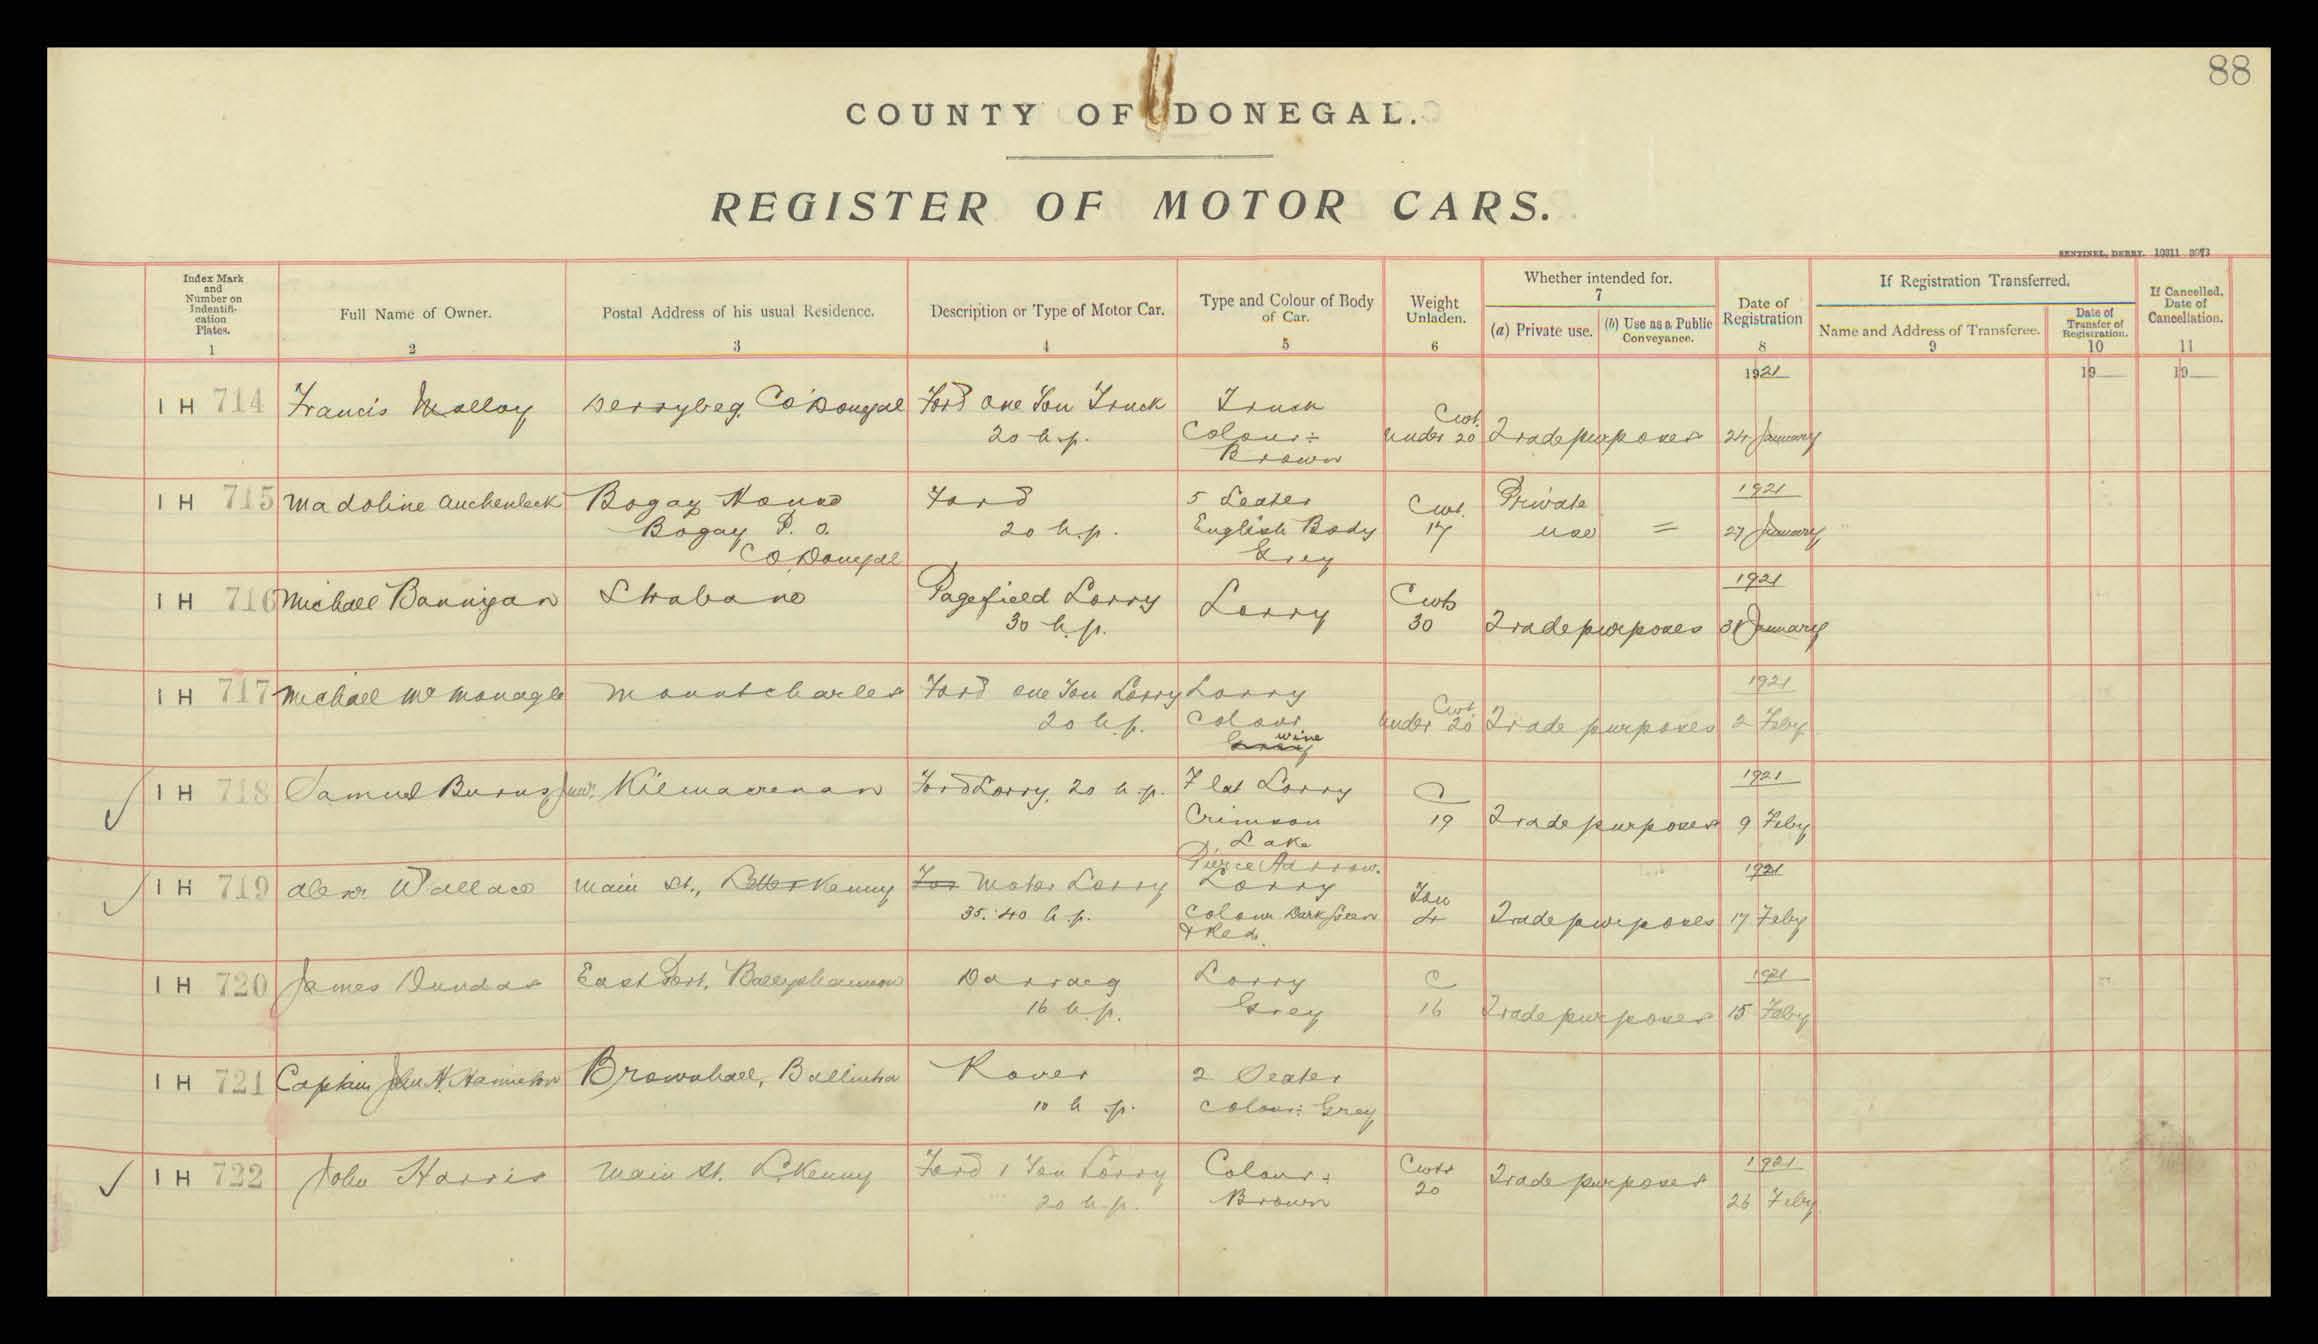 88
COUNTY OF DONEGAL.
REGISTER OF MOTOR CARS.
SENTINEL, DERRY. 10311 3073
Index Mark and Number on Indentifi-cation Plates. 1
Full Name of Owner. 2
Postal Address of his usual Residence. 3
Description or Type of Motor Car. 4
Type and Colour of Body of Car. 5
Weight Unladen. 6
Whether intended for. 7
(a) Private use.
(b) Use as a Public Conveyance.
Date of Registration 8
If Registration Transferred.
Name and Address of Transferee. 9
Date of Transfer of Registration. 10
If Cancelled, Date of Cancellation. 11
1921 19 19
IH 714 Francis Molloy Derrybeg, Co Donegal Ford One Ton Truck Truck Cwt.
20 h.p. Colour:- under 20 Trade purposes 24 January
Brown
IH 715 Madoline Auchenleck Bogay House Ford 5 Seater Cwt. Private 1921
Bogay P.O. 20 h.p. English Body 17 use = 27 January
Co. Donegal Grey
IH 716 Michael Bannigan Strabane Pagefield Lorry Lorry Cwts 1921
30 h.p. 30 Trade purposes 31 January
IH 717 Michael McMonagle Mountcharles Ford one Ton Lorry Lorry Cwt. 1921
20 h.p. Colour under 20 Trade purposes 2 Feby
Grey wine
IH 718 Samuel Burns Junr. Kilmacrenan Ford Lorry, 20 h.p. Flat Lorry C 1921
Crimson 19 Trade purposes 9 Feby
Lake
Pierce Arrow.
IH 719 Alexr. Wallace Main St., Letterkenny For Motor Lorry Lorry Ton 1921
35.40 h.p. Colour Dark Green 4 Trade purposes 17 Feby
& Red.
IH 720 James Dundas East Port, Ballyshannon Darracq Lorry C 1921
16 h.p. Grey 16 Trade purposes 15 Feby
IH 721 Captain John H. Hamilton Brownhall, Ballintra Rover 2 Seater
10 h.p. Colour: Grey
IH 722 John Harris Main St. L'Kenny Ford 1 Ton Lorry Colour: Cwts 1921
20 h.p. Brown 20 Trade purposes 26 Feby